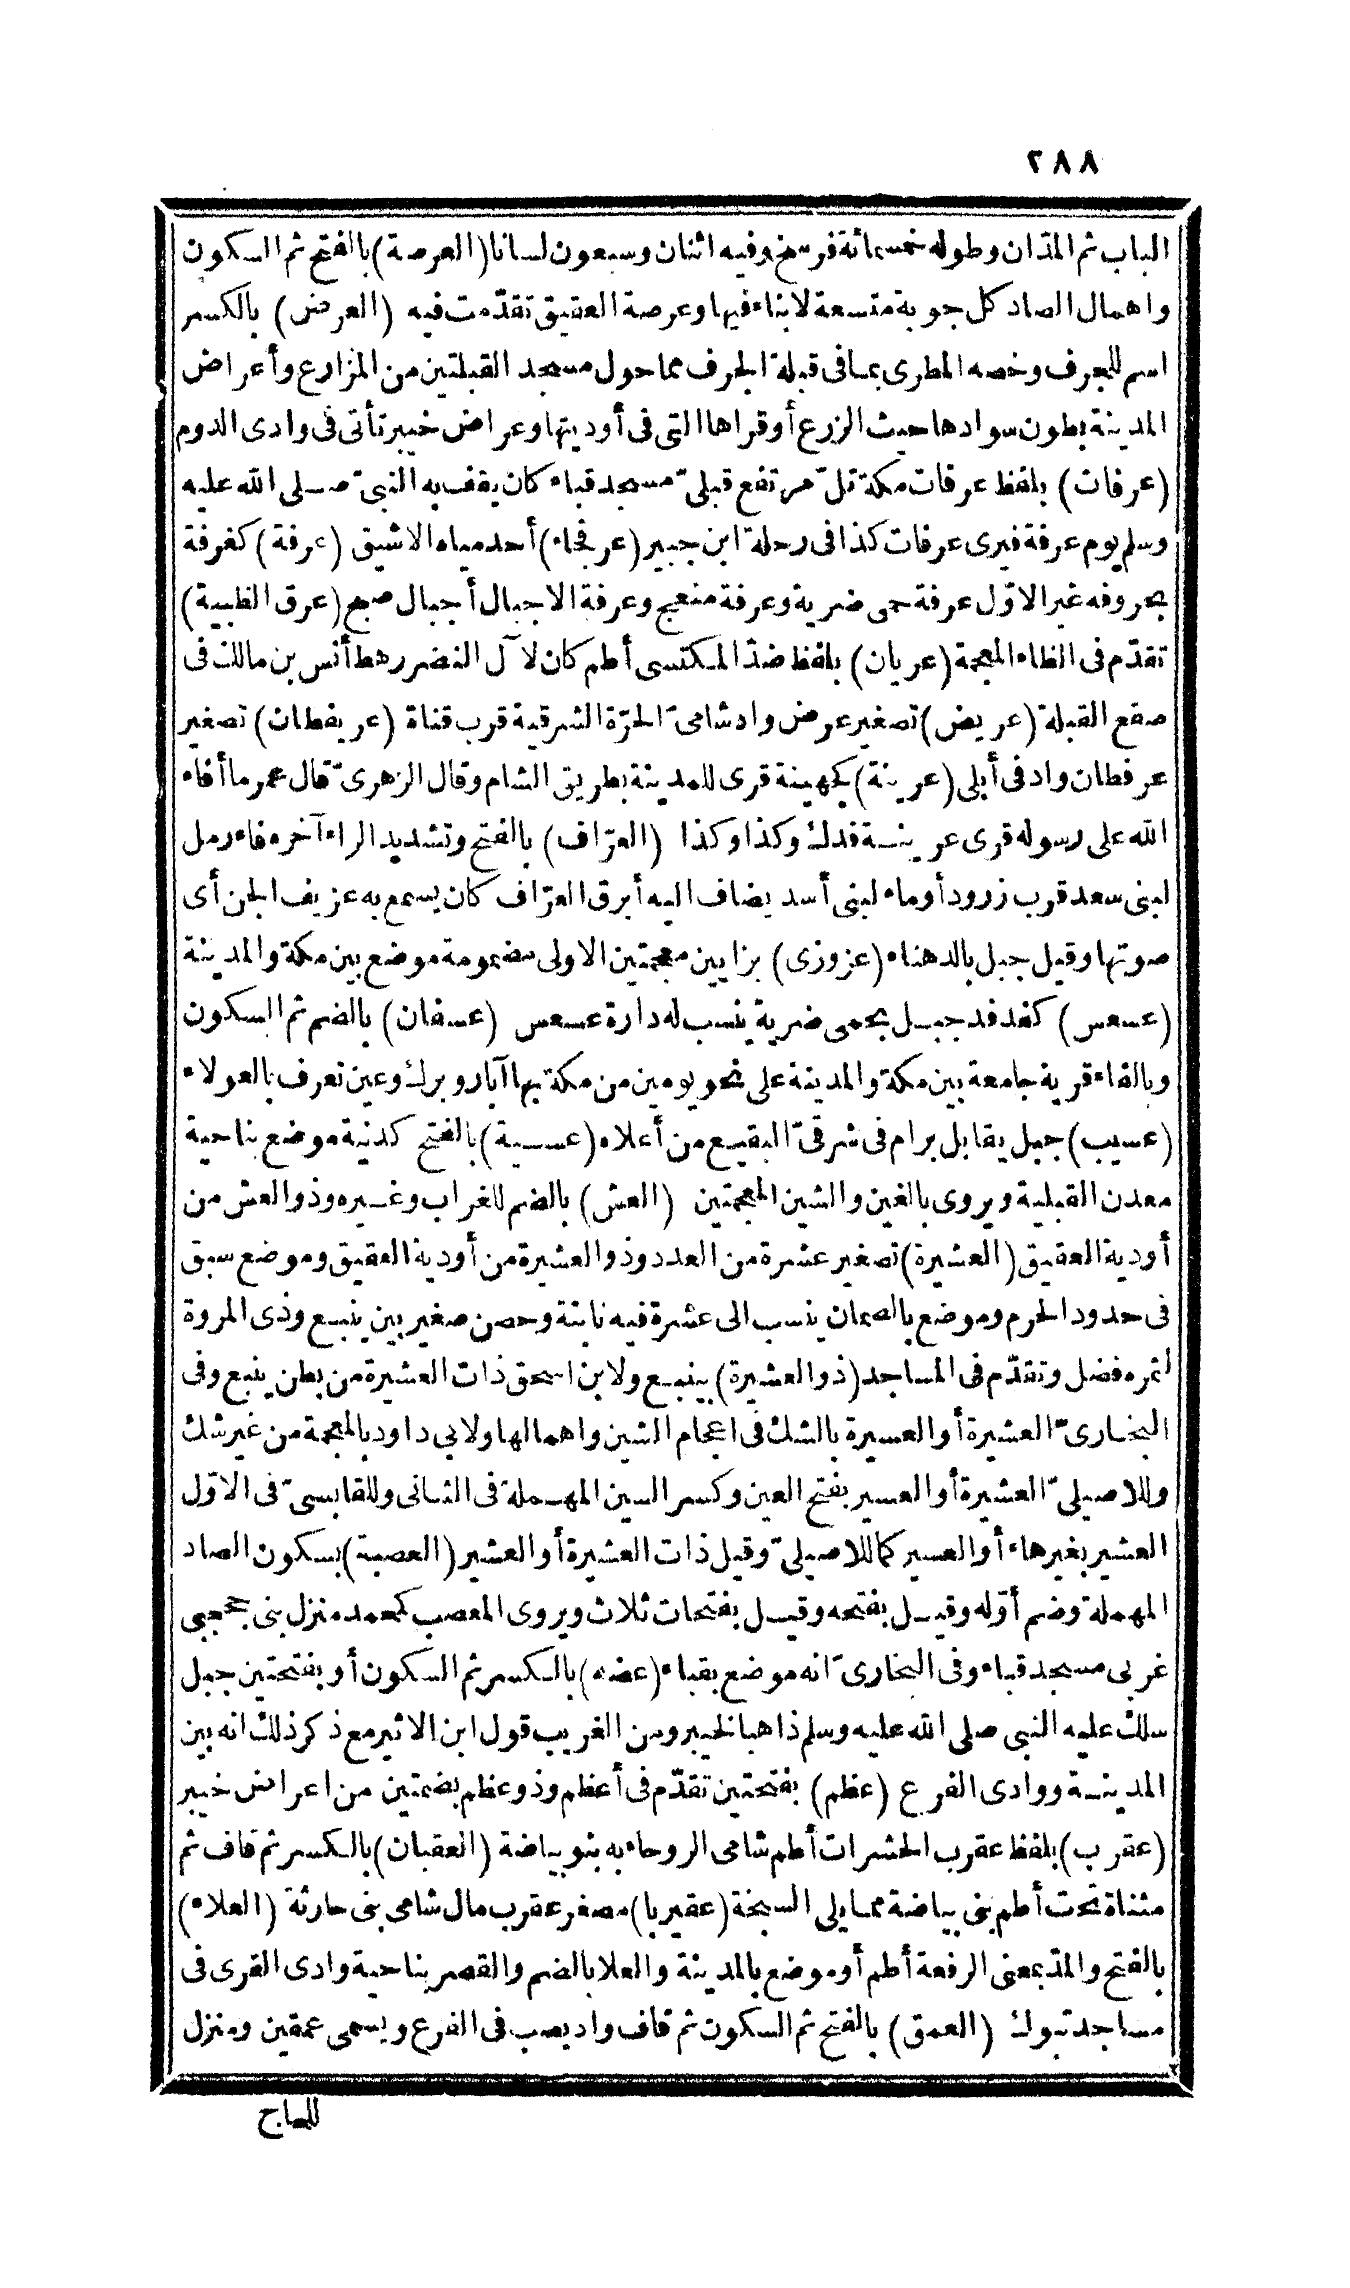 ٢٨٨
الباب ثم المدّان وطوله خمسمائة فرسخ وفيه اثنان وسبعون لسانا (العرصة) بالفتح ثم السكون
واهمال الصاد كل جوبة متسعة لا بناء فيها وعرصة العقيق تقدّمت فيه (العرض) بالكسر
اسم للجرف وخصه المطرى بما فى قبلة الجرف مما حول مسجد القبلتين من المزارع وأعراض
المدينة بطون سوادها حيث الزرع أو قراها التى فى أوديتها وعراض خيبر تأتى فى وادى الدوم
(عرفات) بلفظ عرفات مكة تلّ مرتفع قبلىّ مسجد قباء كان يقف به النبىّ صلى الله عليه
وسلم يوم عرفة فيرى عرفات كذا فى رحلة ابن جبير (عرفجاء) أحد مياه الاشيق (عرفة) كغرفة
بحروفه غير الاوّل عرفة حمى ضرية وعرفة منعج وعرفة الاجبال أجبال صبح (عرق الظبية)
تقدّم فى الظاء المعجمة (عريان) بلفظ ضدّ المكتسى أطم كان لآل النضر رهط أنس بن مالك فى
صقع القبلة (عريض) تصغير عرض واد شامىّ الحرّة الشرقية قرب قناة (عريفطان) تصغير
عرفطان واد فى أبلى (عرينة) كجهينة قرى للمدينة بطريق الشام وقال الزهرىّ قال عمر ما أفاء
الله على رسوله قرى عرينة فدك وكذا وكذا (العزّاف) بالفتح وتشديد الزاء آخره فاء رمل
لبنى سعد قرب زرود أو ماء لبنى أسد يضاف اليه أبرق العزّاف كان يسمع به عزيف الجن أى
صوتها وقيل جبل بالدهناء (عزوزى) بزايين معجمتين الاولى مضمومة موضع بين مكة والمدينة
(عسعس) كفدفد جبل بحمى ضرية ينسب له دارة عسعس (عسفان) بالضم ثم السكون
وبالفاء قرية جامعة بين مكة والمدينة على نحو يومين من مكة بها آبار وبرك وعين تعرف بالعولاء
(عسيب) جبل يقابل برام فى شرقىّ البقيع من أعلاه (عسية) بالفتح كدنية موضع بناحية
معدن القبلية ويروى بالغين والشين المعجمتين (العش) بالضم للغراب وغيره وذو العش من
أودية العقيق (العشيرة) تصغير عشرة من العدد وذو العشيرة من أودية العقيق وموضع سبق
فى حدود الحرم وموضع بالصمان ينسب الى عشرة فيه نابتة وحصن صغير بين ينبع وذى المروة
لتمره فضل وتقدّم فى المساجد (ذو العشيرة) بينبع ولابن اسحق ذات العشيرة من بطن ينبع وفى
البخارىّ العشيرة أو العسيرة بالشك فى اعجام الشين واهمالها ولابى داود بالمعجمة من غير شك
وللاصيلىّ العشيرة أو العسير بفتح العين وكسر السين المهملة فى الثانى وللقابسىّ فى الاوّل
العشير بغير هاء أو العسير كما للاصيلىّ وقيل ذات العشيرة أو العشير (العصبة) بسكون الصاد
المهملة وضم أوّله وقيل بفتحه وقيل بفتحات ثلاث ويروى المعصب كمحمد منزل بنى جحجبى
غربى مسجد قباء وفى البخارىّ انه موضع بقباء (عضه) بالكسر ثم السكون أو بفتحتين جبل
سلك عليه النبى صلى الله عليه وسلم ذاهبا لخيبر ومن الغريب قول ابن الاثير مع ذكر ذلك انه بين
المدينة ووادى الفرع (عظم) بفتحتين تقدّم فى أعظم وذو عظم بضمتين من اعراض خيبر
(عقرب) بلفظ عقرب الحشرات أطم شامى الروحاء به بنو بياضة (العقبان) بالكسر ثم قاف ثم
مثناة تحت أطم بنى بياضة مما يلى السبخة (عقيربا) مصغر عقرب مال شامى بنى حارثة (العلاء)
بالفتح والمدّ بمعنى الرفعة أطم أو موضع بالمدينة والعلا بالضم والقصر بناحية وادى القرى فى
مساجد تبوك (العمق) بالفتح ثم السكون ثم قاف واد يصب فى الفرع ويسمى عمقين ومنزل
للحاج